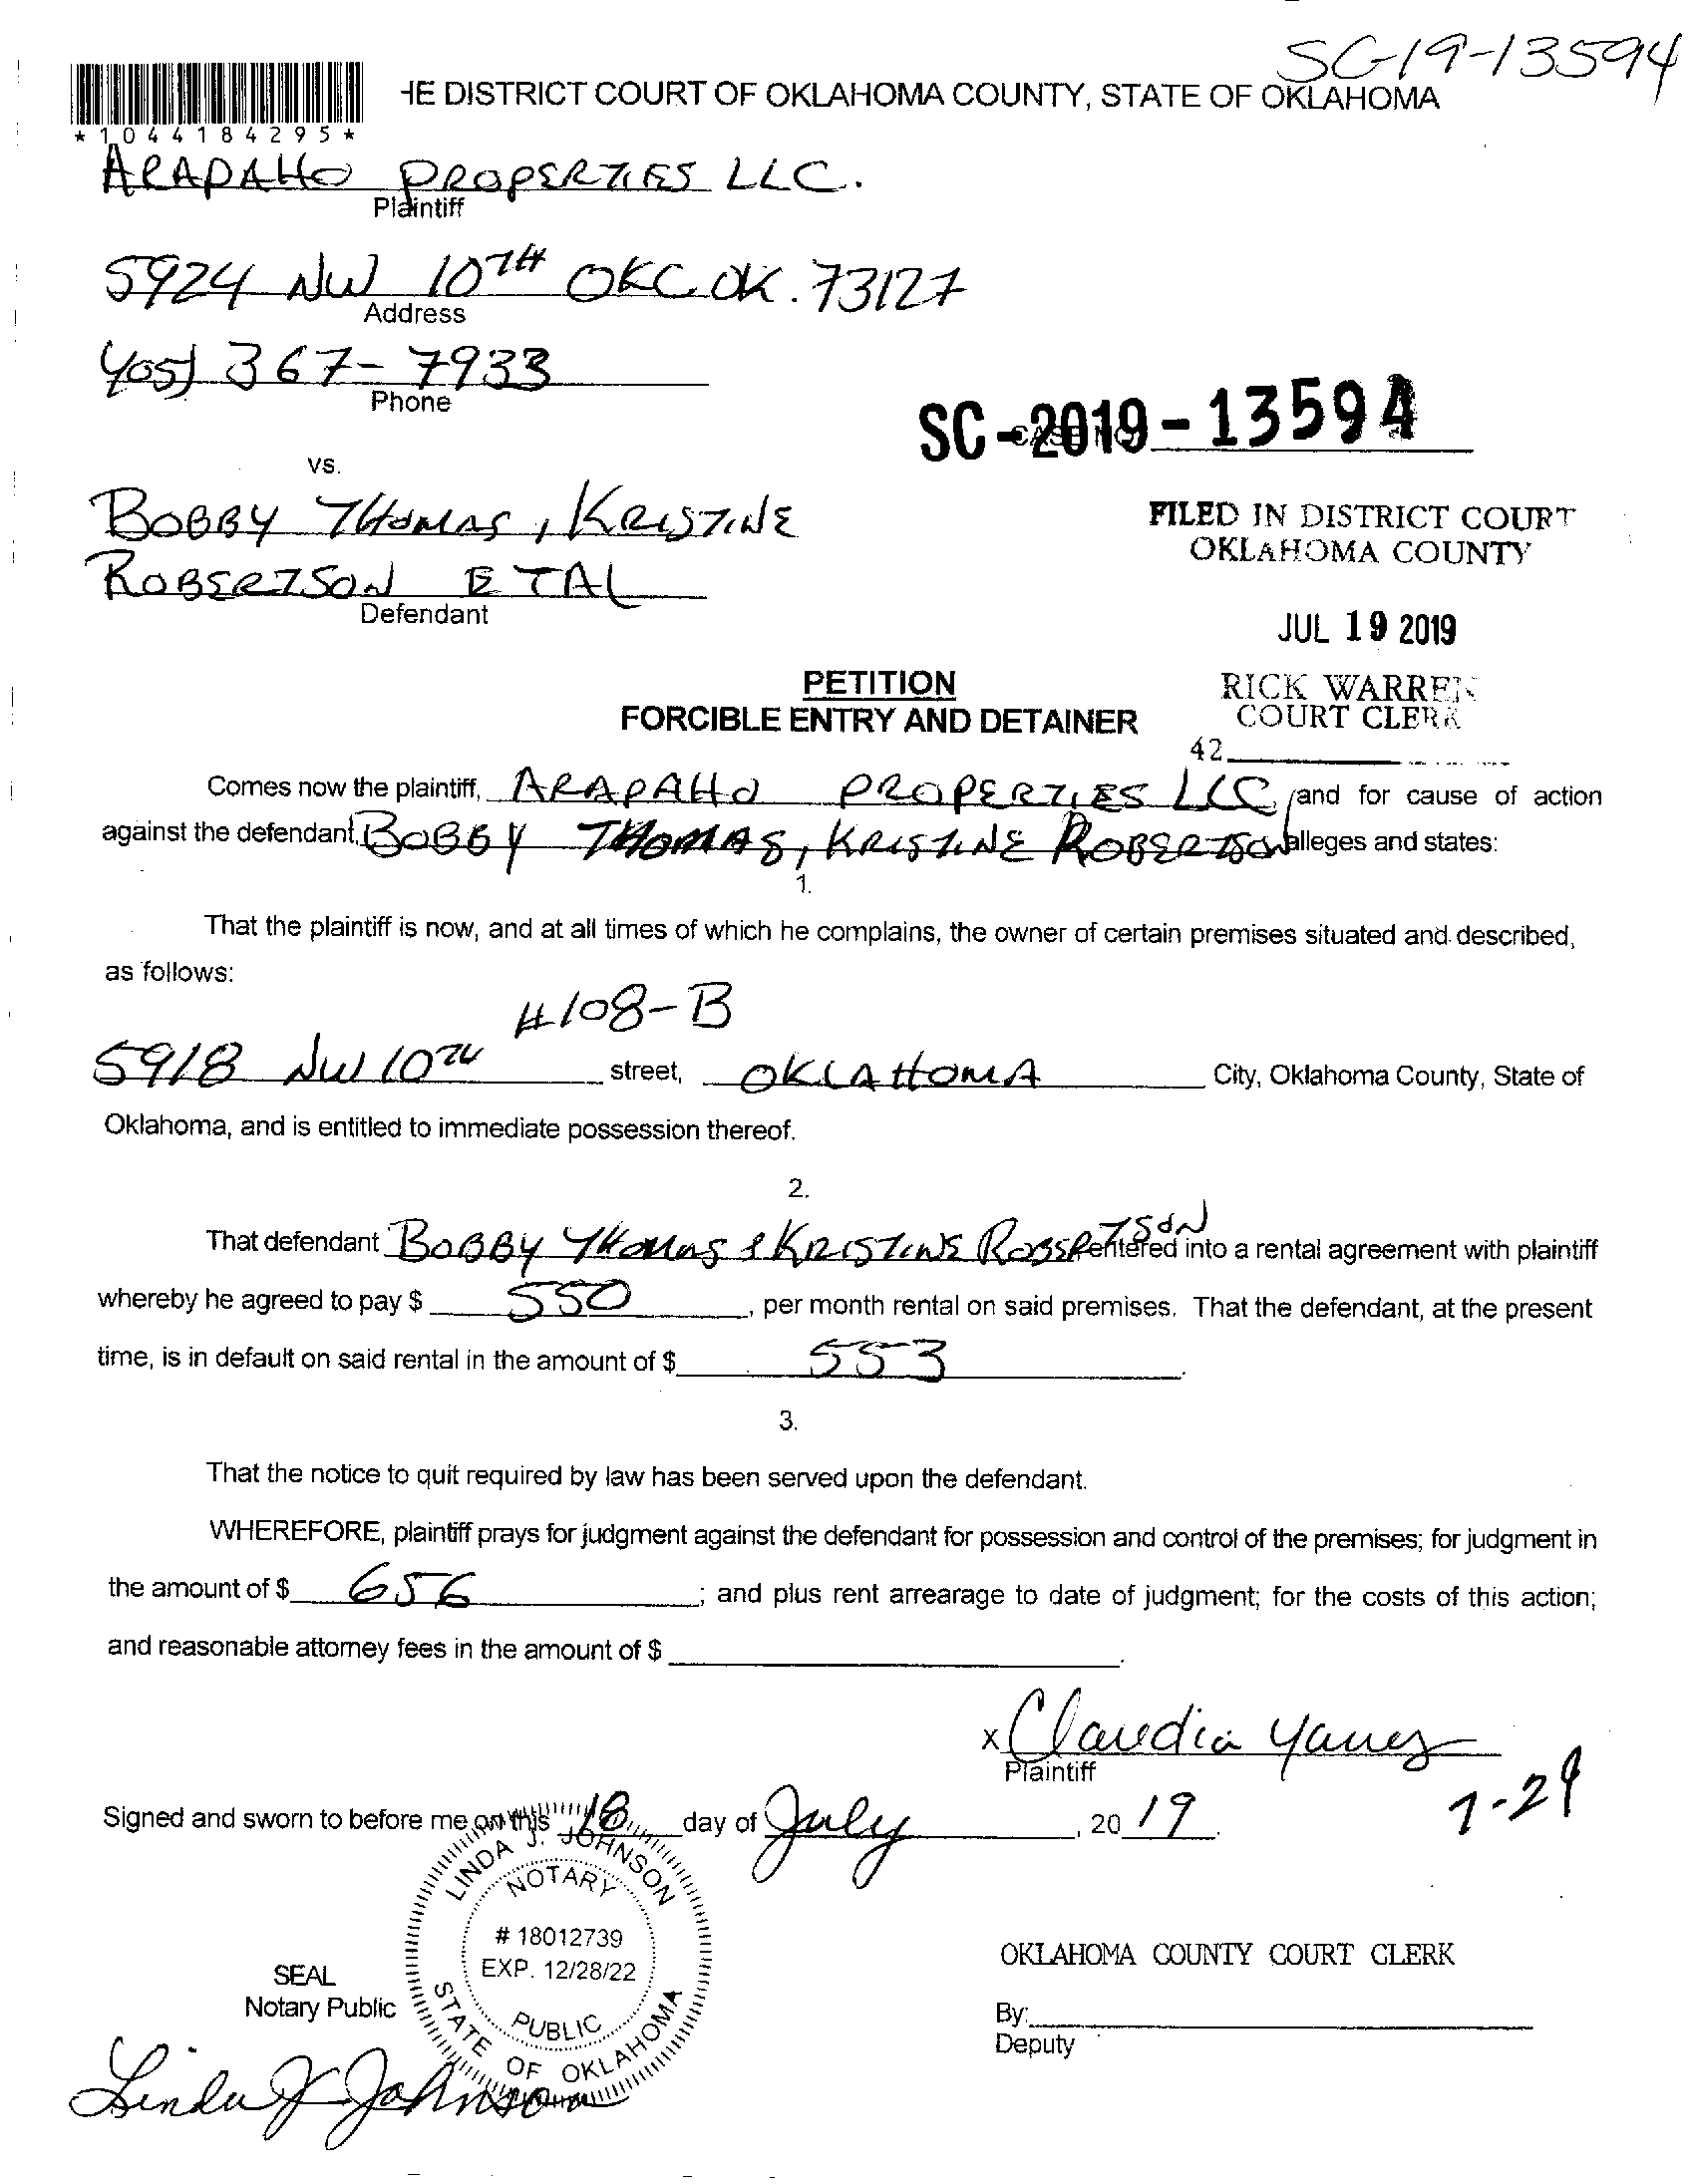 SC-19-13594
HE DISTRICT COURT OF OKLAHOMA COUNTY, STATE OF OKLAHOMA
*1044184295*
ARAPAHO PROPERTIES LLC.
Plaintiff
5924 NW 10TH OKC OK. 73127
Address
405) 367-7933
Phone
SC-2019-13594
CASE NO.
vs.
BOBBY THOMAS, KRISTINE
ROBERTSON ETAL
Defendant
FILED IN DISTRICT COURT
OKLAHOMA COUNTY
JUL 19 2019
RICK WARREN
COURT CLERK
42
PETITION
FORCIBLE ENTRY AND DETAINER
Comes now the plaintiff, ARAPAHO PROPERTIES LLC, and for cause of action
against the defendant, BOBBY THOMAS, KRISTINE ROBERTSON alleges and states:
1.
That the plaintiff is now, and at all times of which he complains, the owner of certain premises situated and described,
as follows:
#108-B
5918 NW 10TH street, OKLAHOMA City, Oklahoma County, State of
Oklahoma, and is entitled to immediate possession thereof.
2.
That defendant BOBBY THOMAS & KRISTINE ROBERTSON entered into a rental agreement with plaintiff
whereby he agreed to pay $ 550, per month rental on said premises. That the defendant, at the present
time, is in default on said rental in the amount of $ 553.
3.
That the notice to quit required by law has been served upon the defendant.
WHEREFORE, plaintiff prays for judgment against the defendant for possession and control of the premises; for judgment in
the amount of $ 656; and plus rent arrearage to date of judgment; for the costs of this action;
and reasonable attorney fees in the amount of $
x Claudia Yanez
Plaintiff
7-29
Signed and sworn to before me on this 18 day of July, 2019.
LINDA J. JOHNSON
NOTARY
# 18012739
EXP. 12/28/22
PUBLIC
STATE OF OKLAHOMA
SEAL
Notary Public
Linda J Johnson
OKLAHOMA COUNTY COURT CLERK
By:
Deputy